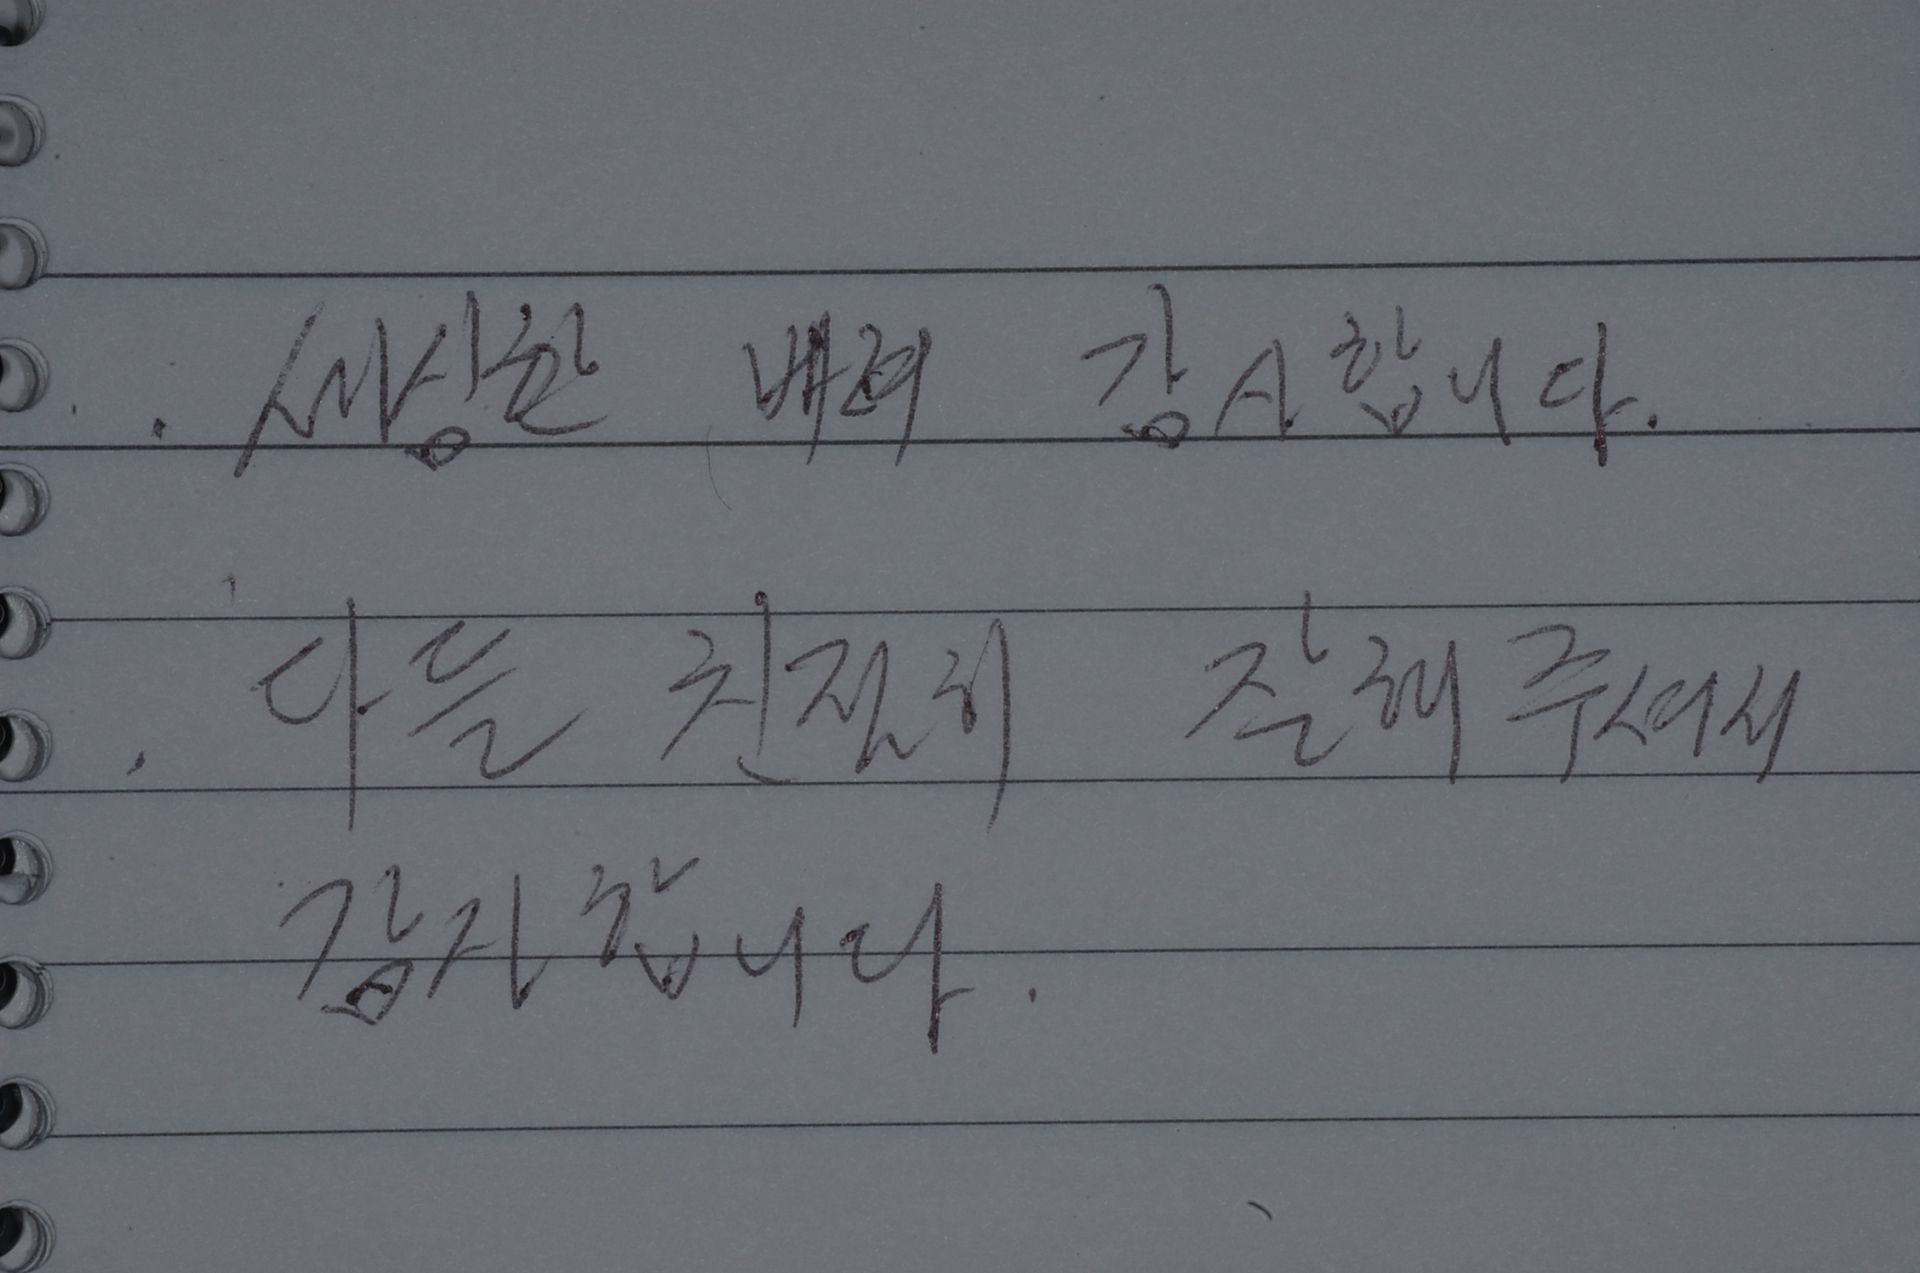 . 세심한 배려 감사합니다.
. 다들 친절히 잘해주셔서
감사합니다.